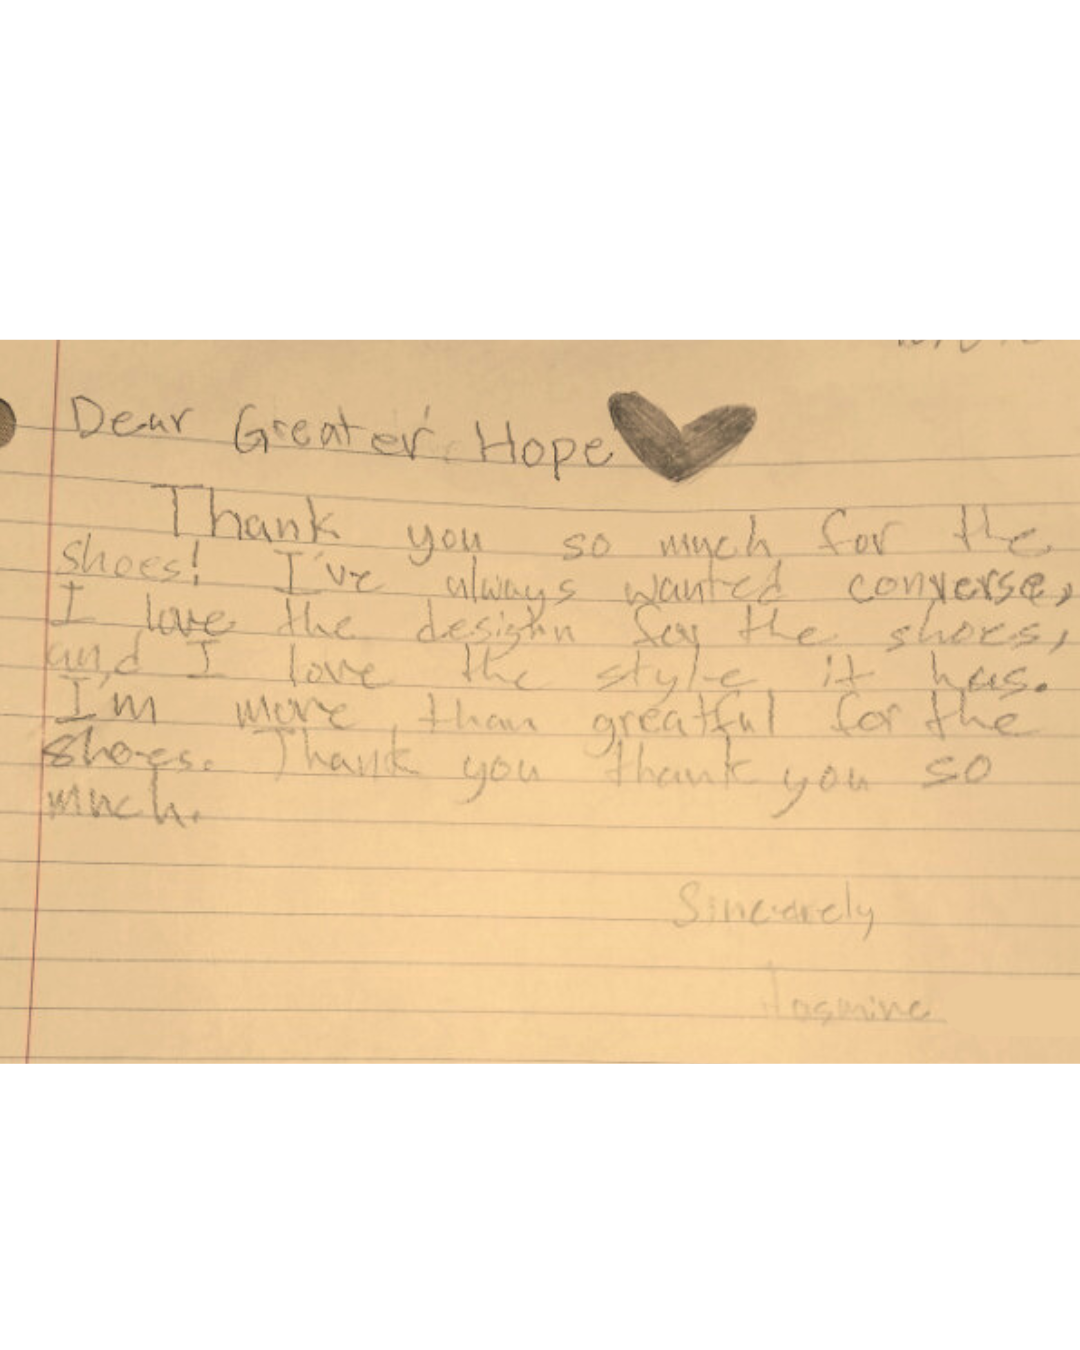 Dear Greater Hope
Thank you so much for the
shoes! I've always wanted converse,
I love the desighn for the shoes,
and I love the style it has.
I'm more than greatful for the
shoes. Thank you thank you so
much.
Sincerely
Jasmine